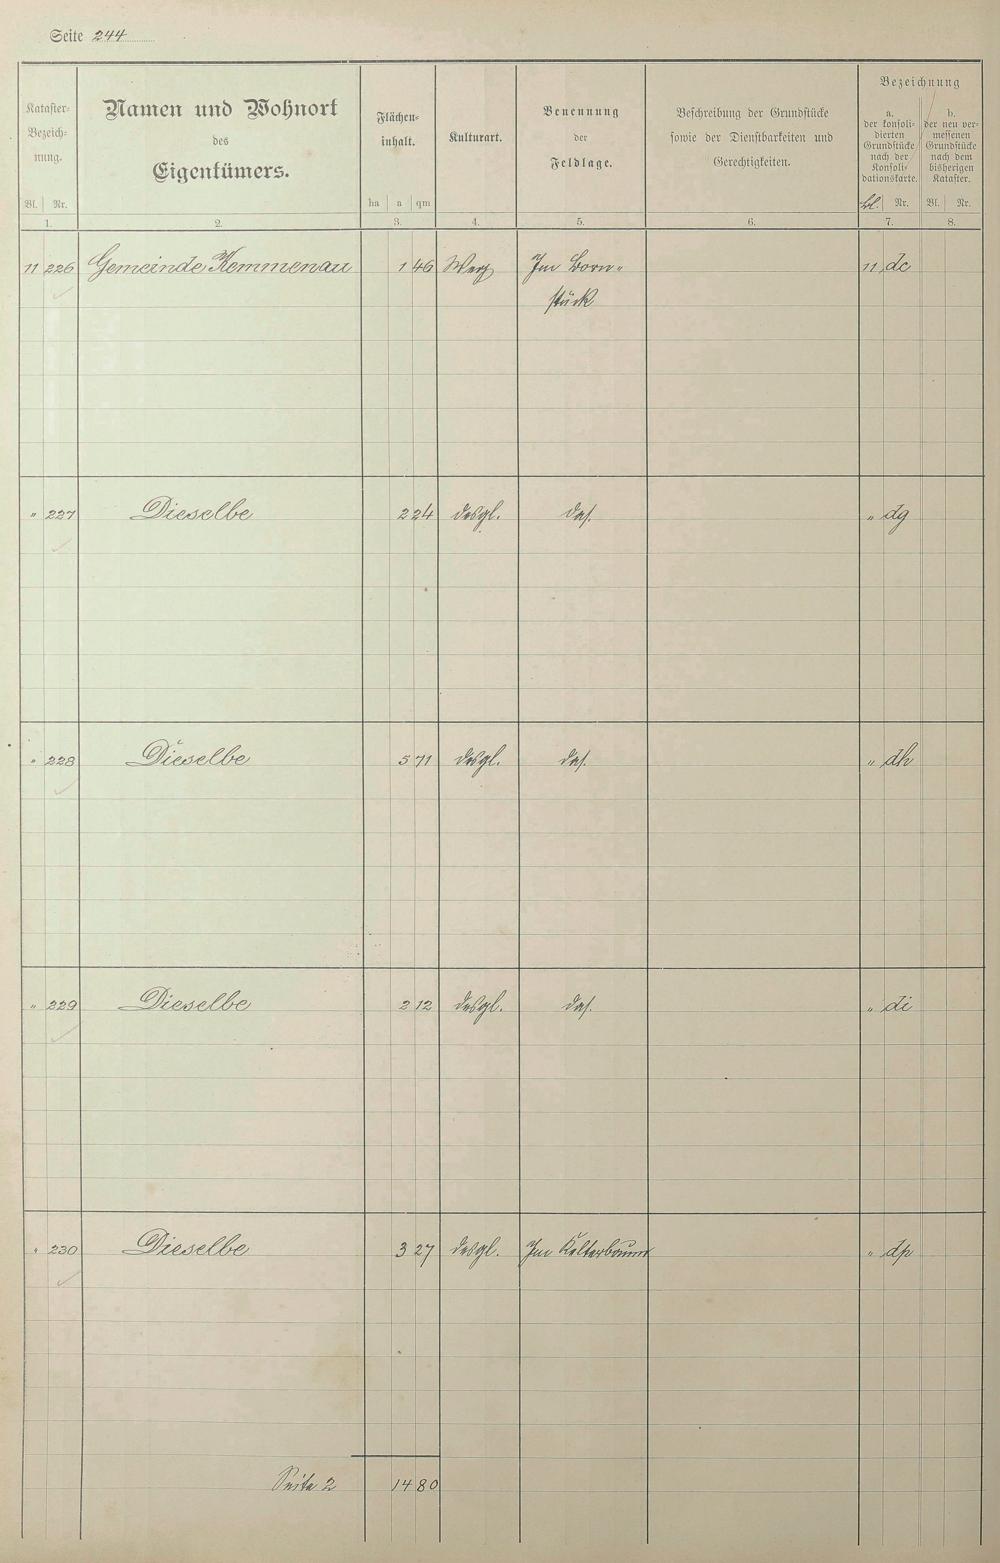 Seite 244
Kataster-
Bezeich-
nung.
Bl. Nr.
Namen und Wohnort
des
Eigentümers.
Flächen-
inhalt.
ha a qm
Kulturart.
Benennung
der
Feldlage.
Beschreibung der Grundstücke
sowie der Dienstbarkeiten und
Gerechtigkeiten.
Bezeichnung
a.
der konsoli-
dierten
Grundstücke
nach der
Konsoli-
dationskarte.
Bl. Nr.
b.
der neu ver-
messenen
Grundstücke
nach dem
bisherigen
Kataster.
Bl. Nr.
1. 2. 3. 4. 5. 6. 7. 8.
11 226 Gemeinde Kemmenau 1 46 Weg Im Born- 11 dc
stück
" 227 Dieselbe 2 24 desgl. das. " dg
" 228 Dieselbe 5 71 desgl. das. " dh
" 229 Dieselbe 2 12 desgl. das. " di
" 230 Dieselbe 3 27 desgl. Im Kelterbaum " dp
Seite 2 14 80